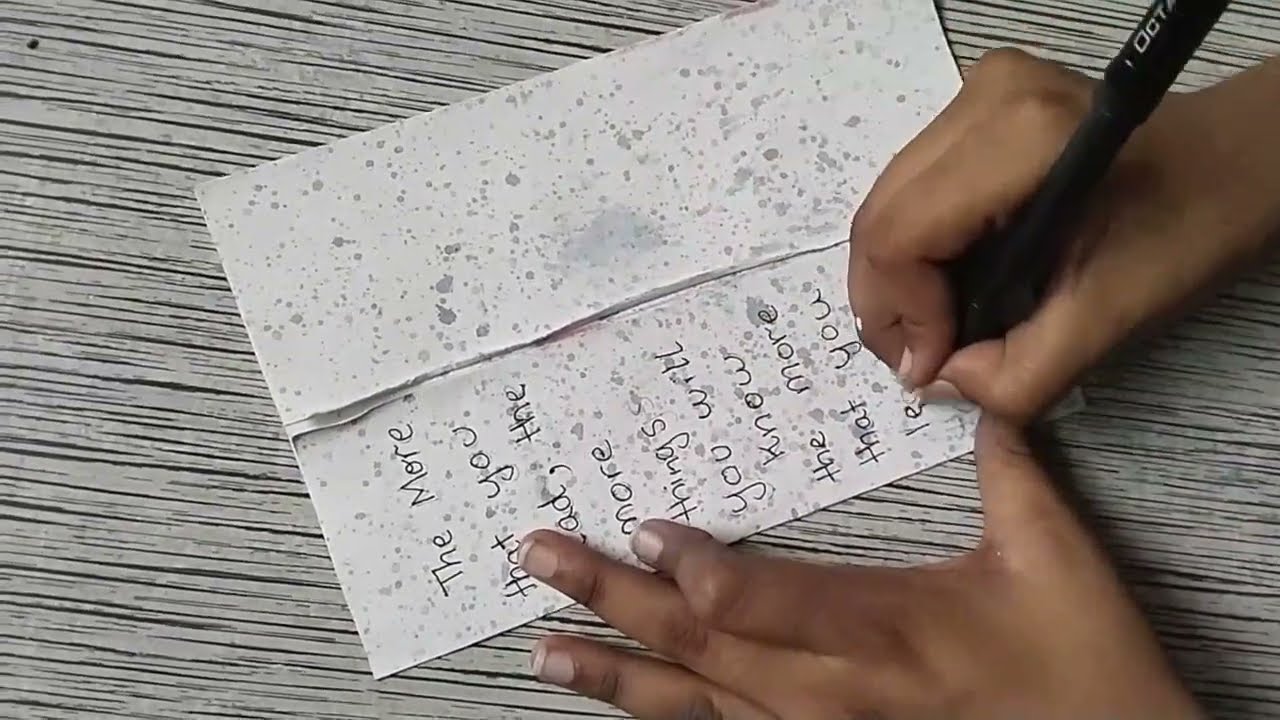 The More
that you
ead, the
more
things
you will
know
the more
that you
le
OCTA